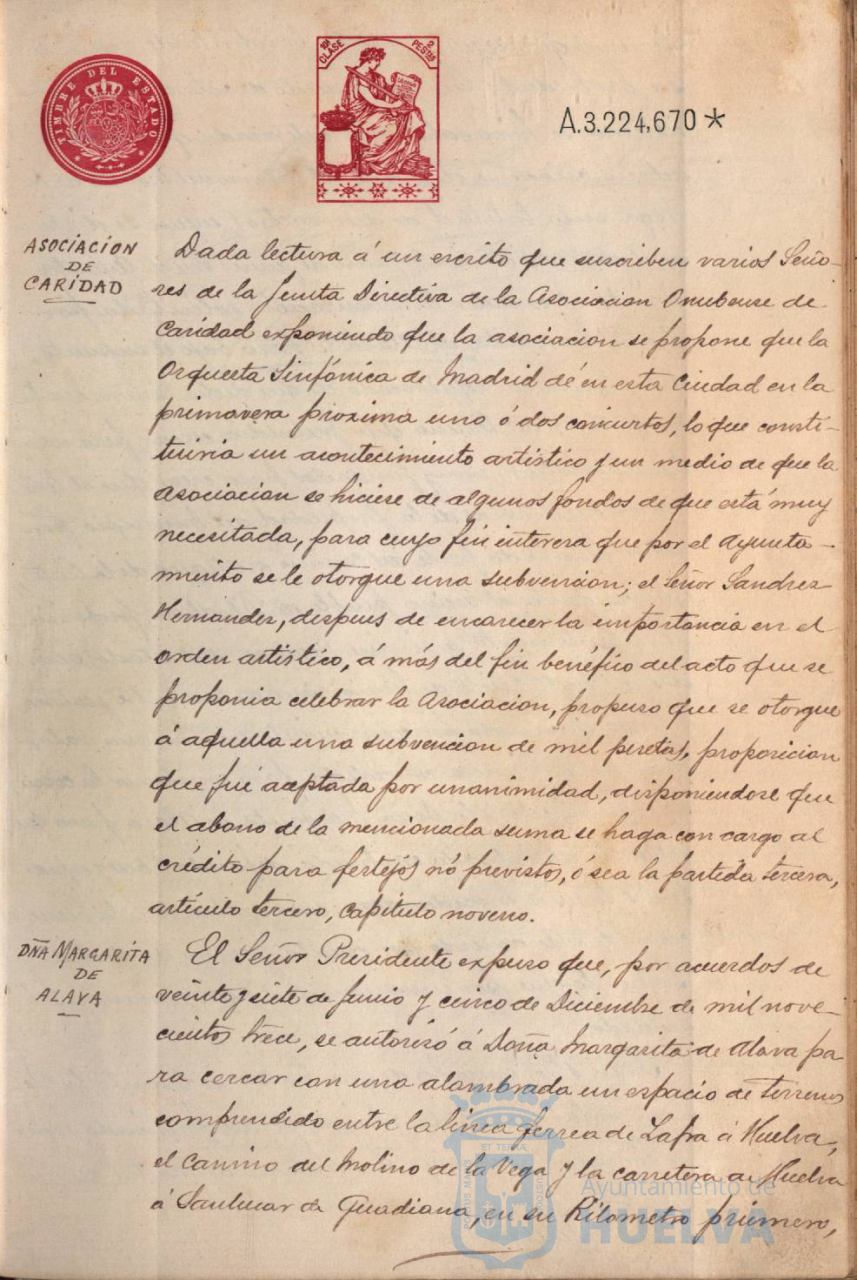 TIMBRE DEL ESTADO
10ª CLASE
2 PESTAS
A.3.224,670*
ASOCIACION
DE
CARIDAD
Dada lectura á un escrito que suscriben varios Seño-
res de la Junta Directiva de la Asociacion Onubense de
Caridad exponiendo que la asociacion se propone que la
Orquesta Sinfónica de Madrid dé en esta Ciudad en la
primavera próxima uno ó dos conciertos, lo que consti-
tuiria un acontecimiento artístico y un medio de que la
asociacion se hiciese de algunos fondos de que está muy
necesitada, para cuyo fin interesa que por el Ayunta-
miento se le otorgue una subvencion; el Señor Sanchez
Hernandez, despues de encarecer la importancia en el
orden artístico, á más del fin benéfico del acto que se
proponia celebrar la Asociacion, propuso que se otorgue
á aquella una subvencion de mil pesetas, proposicion
que fué aceptada por unanimidad, disponiendose que
el abono de la mencionada suma se haga con cargo al
crédito para festejos nó previstos, ó sea la partida tercera,
artículo tercero, capitulo noveno.
DÑA MARGARITA
DE
ALAVA
El Señor Presidente expuso que, por acuerdos de
veinte y siete de Junio y cinco de Diciembre de mil nove-
cientos trece, se autorizó á Doña Margarita de Alava pa
ra cercar con una alambrada un espacio de terreno
comprendido entre la linea ferrea de Zafra á Huelva,
el Camino del Molino de la Vega y la carretera de Huelva
á Sanlucar de Guadiana, en su Kilometro primero,
Ayuntamiento de
HUELVA